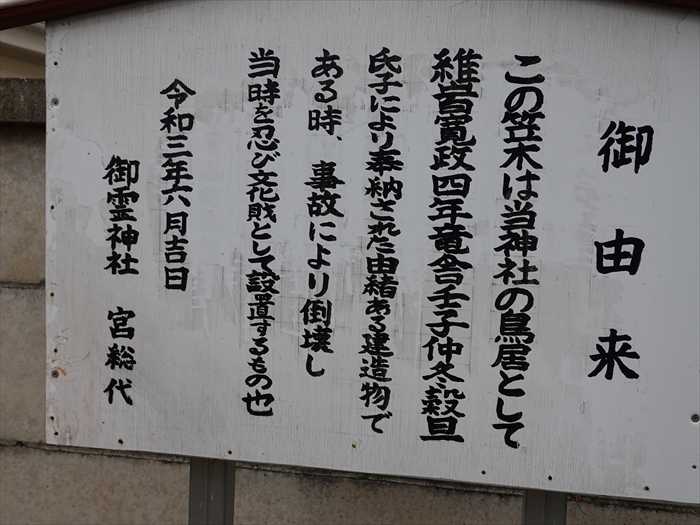 御由来
この笠木は当神社の鳥居として
維昔寛政四年竜舎壬子仲冬穀旦
氏子により奉納された由緒ある建造物で
ある時、事故により倒壊し
当時を忍び文化財として設置するもの也
令和三年六月吉日
御霊神社 宮総代